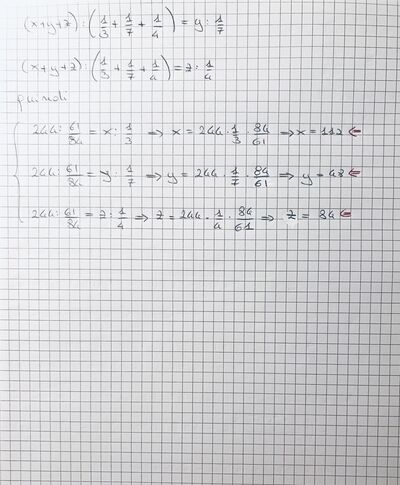 (x+y+z):(1/3+1/7+1/4)=y:1/7
(x+y+z):(1/3+1/7+1/4)=z:1/4
quindi
244:61/84=x:1/3 ⇒ x=244·1/3·84/61 ⇒ x=112 ⇐
244:61/84=y:1/7 ⇒ y=244·1/7·84/61 ⇒ y=48 ⇐
244:61/84=z:1/4 ⇒ z=244·1/4·84/61 ⇒ z=84 ⇐